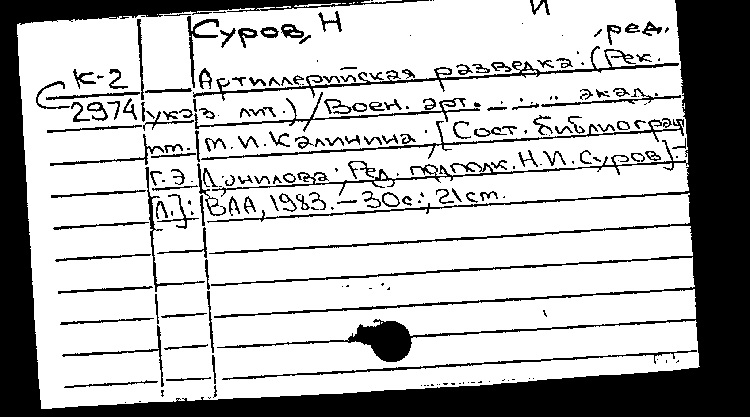 Суров, Н И
, ред.
К-2 Артиллерийская разведка: (Рек.
С 2974 указ. лит.) / Воен. арт. акад.
им. М.И. Калинина; [Сост. библиограф
Г.Э. Данилова; Ред. подполк. Н.И. Суров].-
[Л.]: ВАА, 1983. – 30с.; 21см.